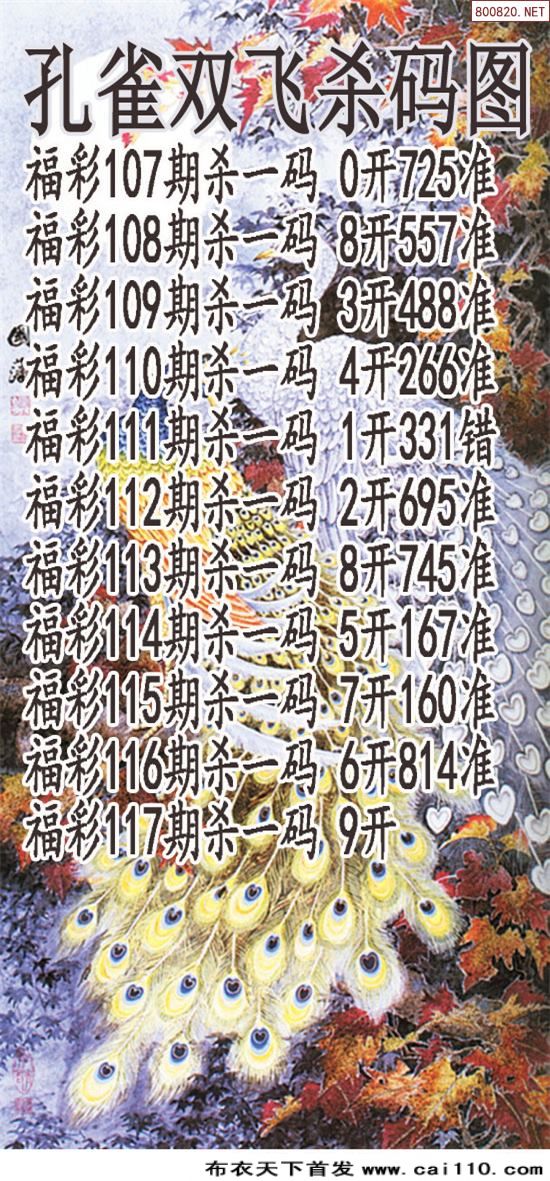 800820.NET
孔雀双飞杀码图
福彩107期杀一码 0开725准
福彩108期杀一码 8开557准
福彩109期杀一码 3开488准
福彩110期杀一码 4开266准
福彩111期杀一码 1开331错
福彩112期杀一码 2开695准
福彩113期杀一码 8开745准
福彩114期杀一码 5开167准
福彩115期杀一码 7开160准
福彩116期杀一码 6开814准
福彩117期杀一码 9开
布衣天下首发 www.cai110.com